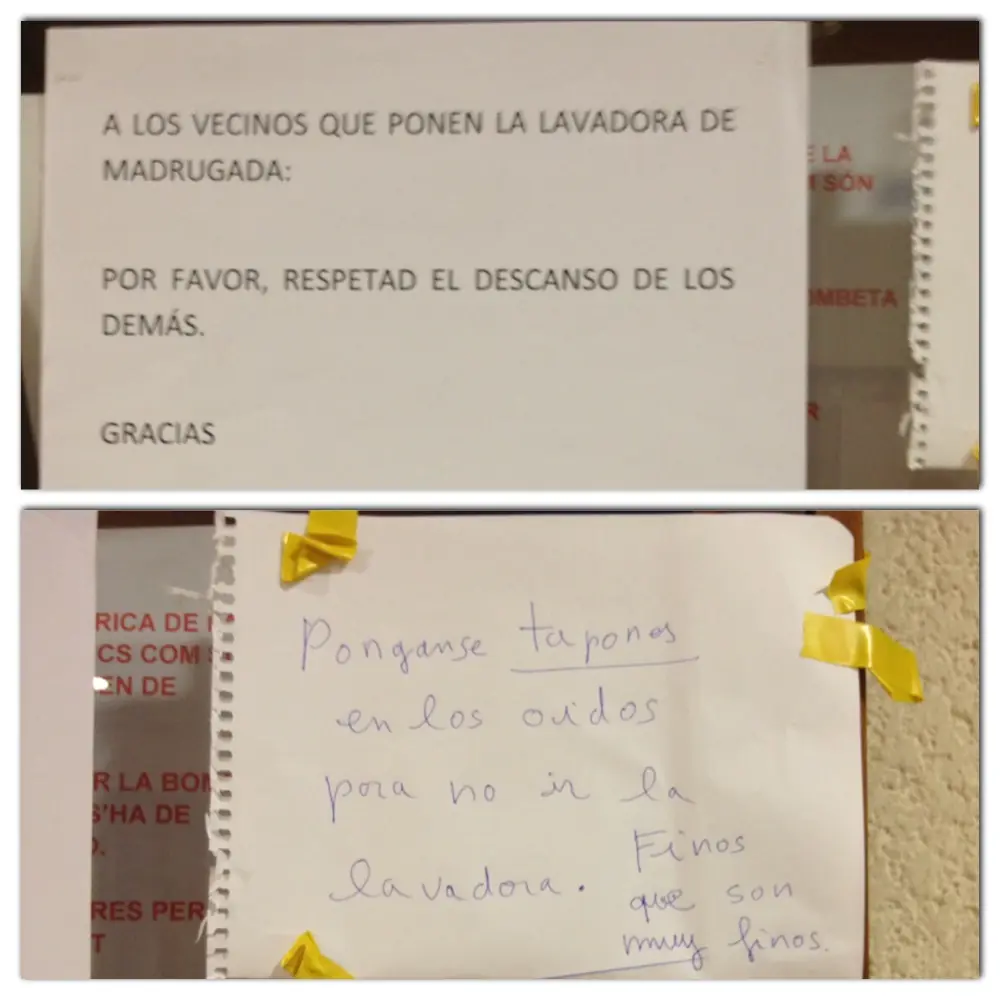 A LOS VECINOS QUE PONEN LA LAVADORA DE
MADRUGADA:
POR FAVOR, RESPETAD EL DESCANSO DE LOS
DEMÁS.
GRACIAS
E LA
SÓN
OMBETA
R
RICA DE
CS COM
EN DE
R LA BOM
S'HA DE
RES PER
T
Ponganse tapones
en los oidos
para no ir la
lavadora.
Finos
que son
muy finos.